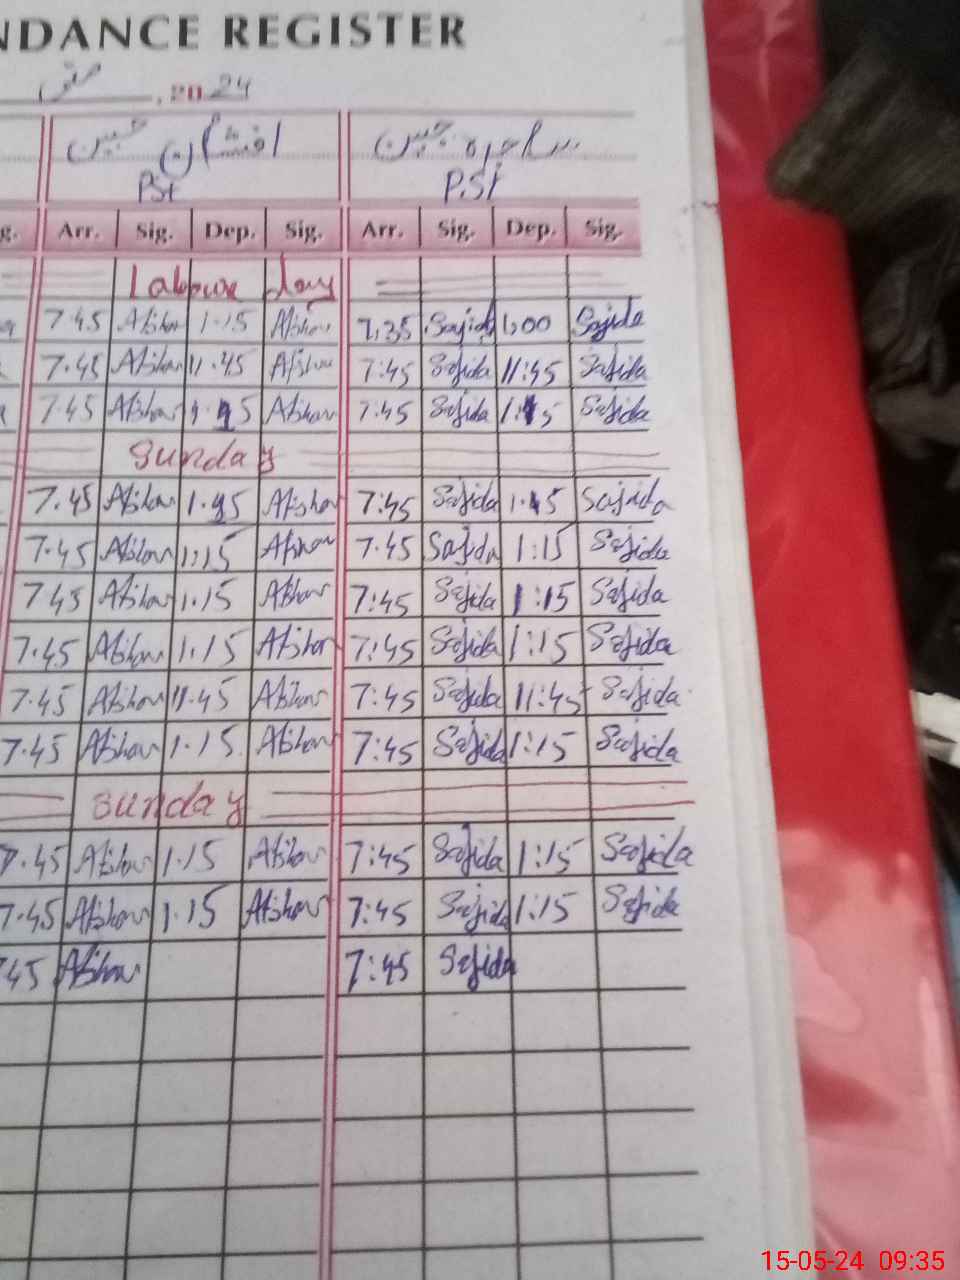 NDANCE REGISTER
مئی , 2024
افشان جبین ساجدہ جبین
PST P.ST
g. Arr. Sig. Dep. Sig. Arr. Sig. Dep. Sig.
Labour day
7.45 Afshan 1.15 Afshan 7:35 Sajida 1:00 Sajida
7.45 Afshan 11.45 Afshan 7:45 Sajida 11:45 Sajida
7.45 Afshan 1.15 Afshan 7:45 Sajida 1:15 Sajida
Sunday
7.45 Afshan 1.15 Afshan 7:45 Sajida 1.15 Sajida
7.45 Afshan 1:15 Afshan 7.45 Sajida 1:15 Sajida
7.45 Afshan 1.15 Afshan 7:45 Sajida 1:15 Sajida
7.45 Afshan 1.15 Afshan 7:45 Sajida 1:15 Sajida
7.45 Afshan 11.45 Afshan 7:45 Sajida 11:45 Sajida
7.45 Afshan 1.15 Afshan 7:45 Sajida 1:15 Sajida
Sunday
7.45 Afshan 1.15 Afshan 7:45 Sajida 1:15 Sajida
7.45 Afshan 1.15 Afshan 7:45 Sajida 1:15 Sajida
45 Afshan 7:45 Sajida
15-05-24 09:35